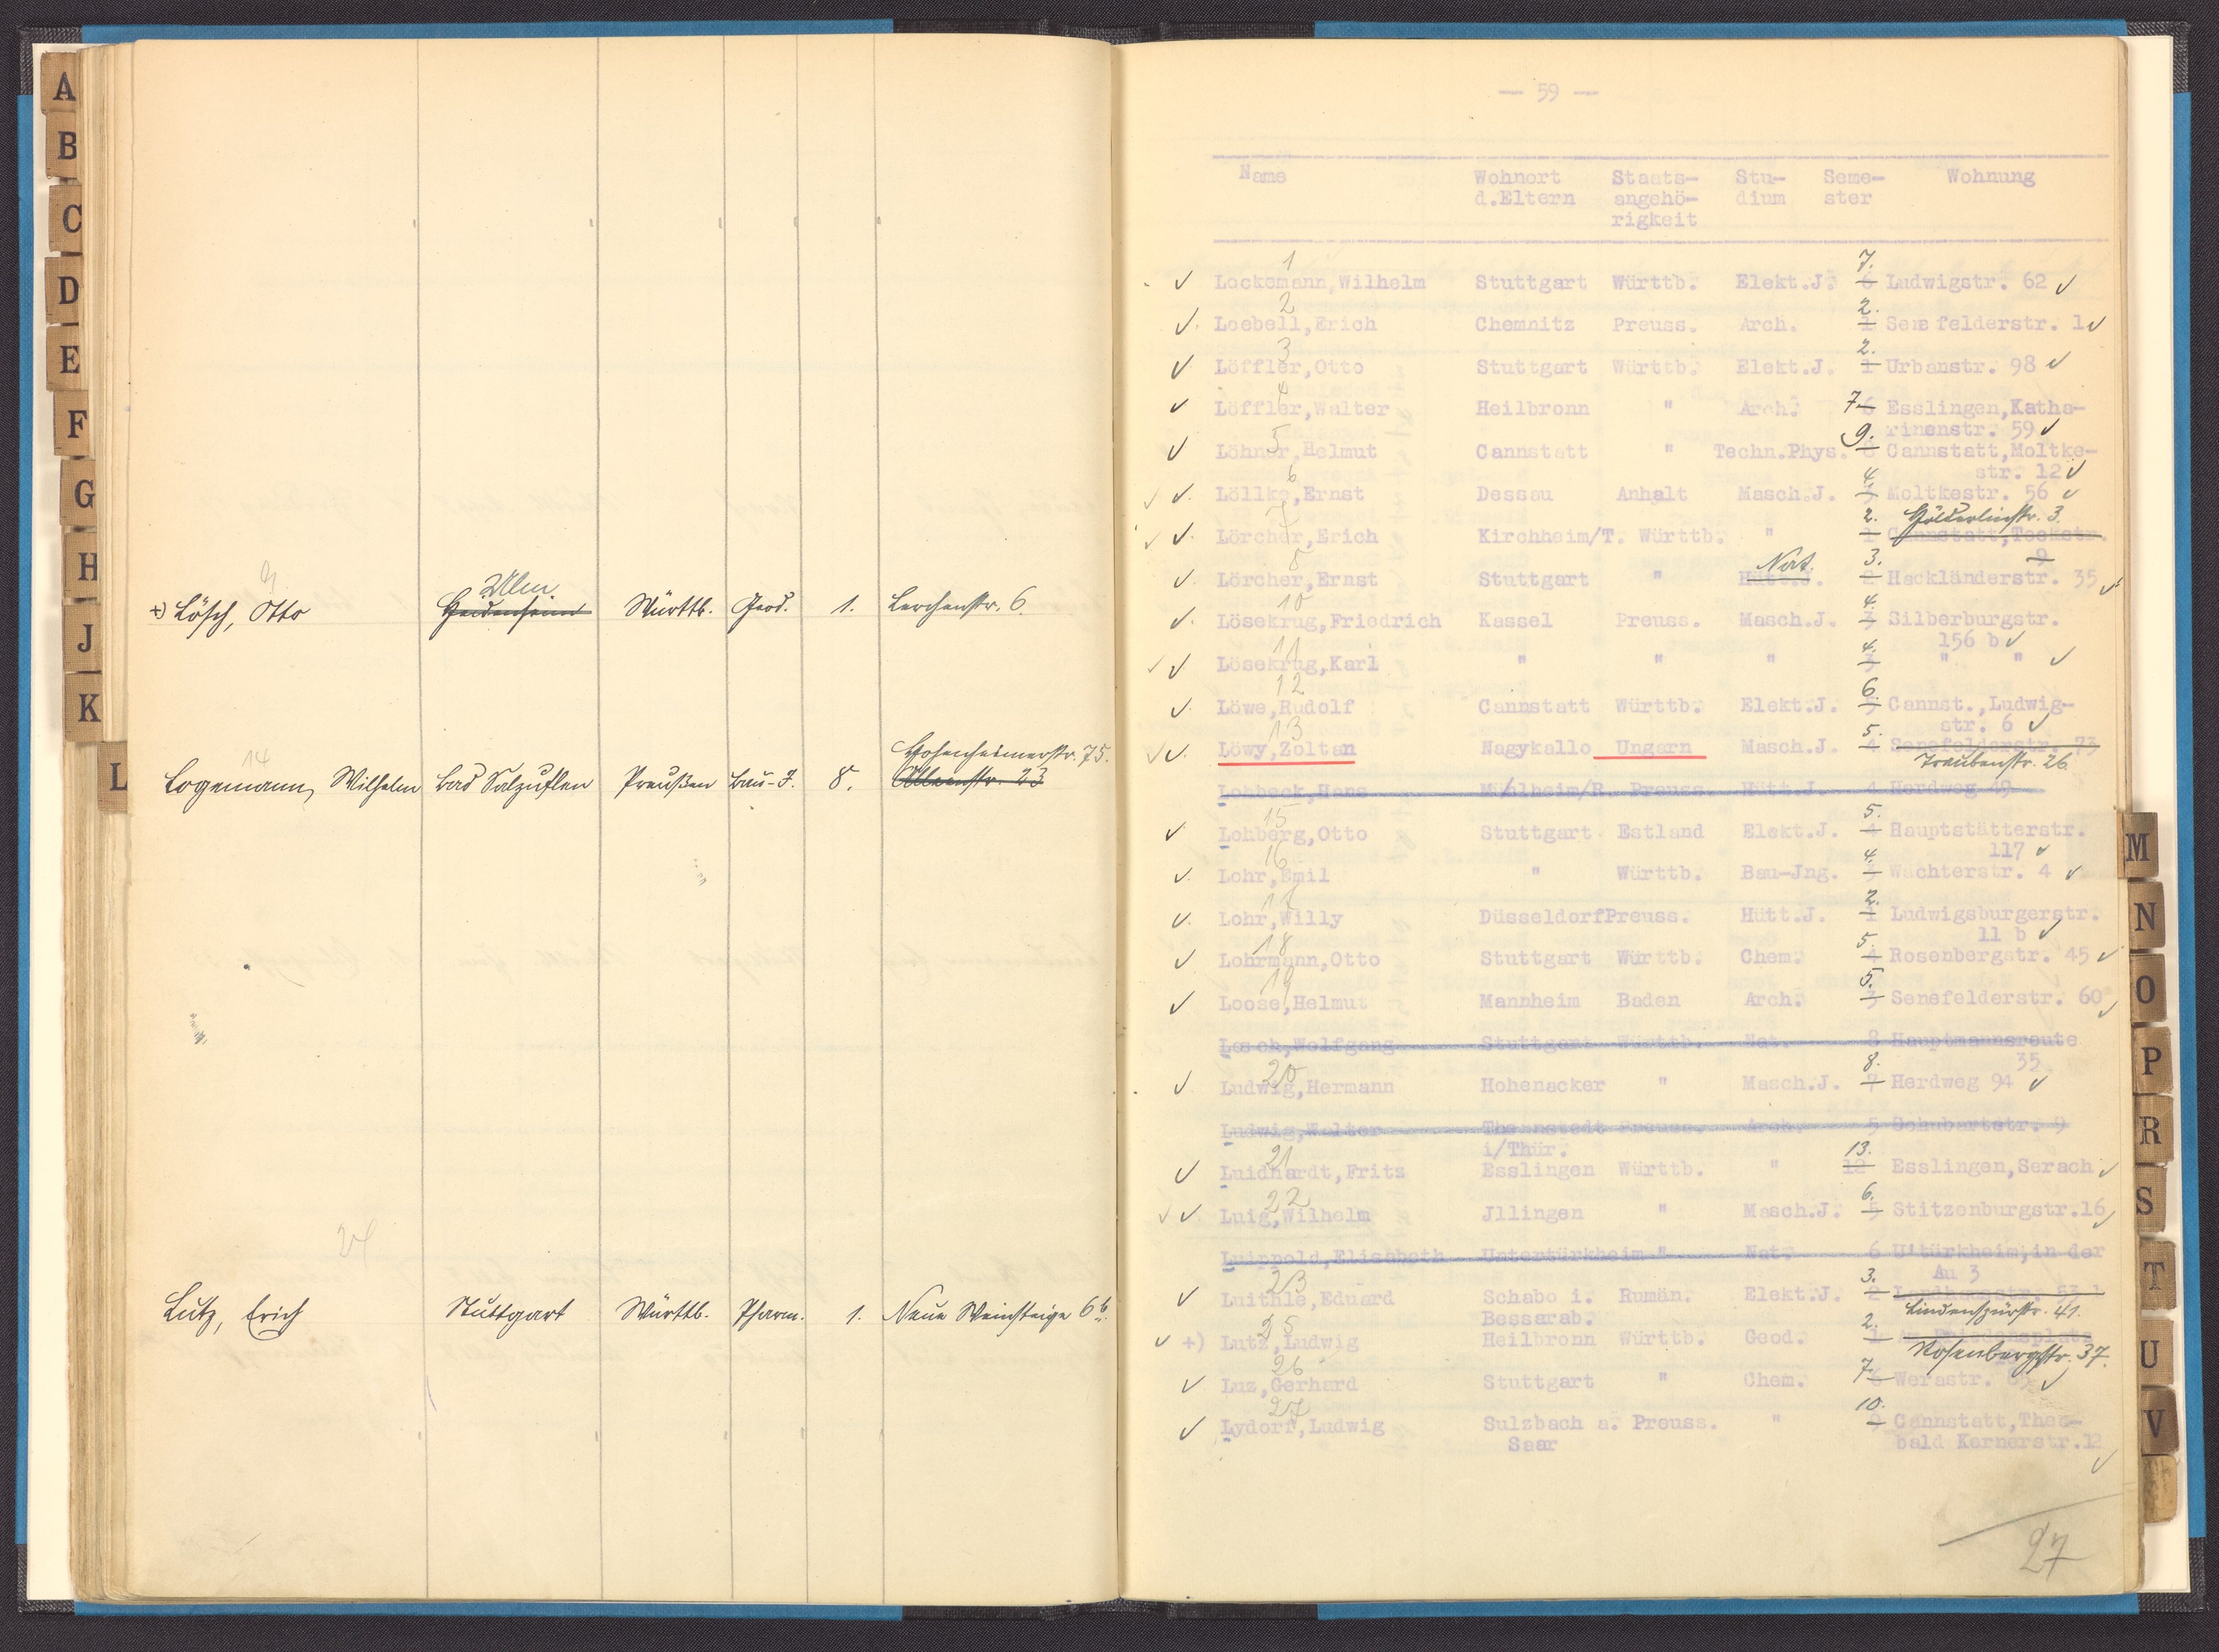 A
B
C
D
E
F
G
H
J
K
L
9
Ulm
+) Lösch, Otto Heidenheim Württb. Geod. 1. Lerchenstr. 6.
14
Hohenheimerstr. 75.
Logemann, Wilhelm Bad Salzuflen Preußen Bau-J. 8. 23
24
Lutz, Erich Stuttgart Württb. Pharm. 1. Neue Weinsteige 6 b.
— 59 —
Name Wohnort Staats- Stu- Seme- Wohnung
d.Eltern angehö- dium ster
rigkeit
1 7.
Lockemann,Wilhelm Stuttgart Württb. Elekt.J. 6 Ludwigstr. 62
2 2.
Loebell,Erich Chemnitz Preuss. Arch. 1 Senefelderstr. 1
3 2.
Löffler,Otto Stuttgart Württb. Elekt.J. 1 Urbanstr. 98
4
Löffler,Walter Heilbronn " Arch. 7 6 Esslingen,Katha-
5 9. rinenstr. 59
Löhner,Helmut Cannstatt " Techn.Phys. 8 Cannstatt,Moltke-
6 4. str. 12
Löllke,Ernst Dessau Anhalt Masch.J. 3 Moltkestr. 56
7 2. Hölderlinstr. 3.
Lörcher,Erich Kirchheim/T. Württb. " 1 Cannstatt,Teckstr.
8 Nat. 3. 9
Lörcher,Ernst Stuttgart " Hütt.J. 2 Hackländerstr. 35
10 4.
Lösekrug,Friedrich Kassel Preuss. Masch.J. 3 Silberburgstr.
11 4. 156 b
Lösekrug,Karl " " " 3 " "
12 6.
Löwe,Rudolf Cannstatt Württb. Elekt.J. 5 Cannst.,Ludwig-
13 5. str. 6
Löwy,Zoltan Nagykallo Ungarn Masch.J. 4 Senefelderstr. 73
Traubenstr. 26.
Lohbeck,Hans Mühlheim/R. Preuss. Hütt.J. 4 Herdweg 49
15 5.
Lohberg,Otto Stuttgart Estland Elekt.J. 4 Hauptstätterstr.
16 4. 117
Lohr,Emil " Württb. Bau-Jng. 3 Wächterstr. 4
17 2.
Lohr,Willy Düsseldorf Preuss. Hütt.J. 1 Ludwigsburgerstr.
18 5. 11 b
Lohrmann,Otto Stuttgart Württb. Chem. 4 Rosenbergstr. 45
19 5.
Loose,Helmut Mannheim Baden Arch. 3 Senefelderstr. 60
Losch,Wolfgang Stuttgart Württb. Nat. 8 Hauptmannsreute
20 8. 35
Ludwig,Hermann Hohenacker " Masch.J. 7 Herdweg 94
Ludwig,Walter Thamstedt Preuss. Arch. 5 Schubartstr. 9
21 i/Thür. 13.
Luidhardt,Fritz Esslingen Württb. " 12 Esslingen,Serach
22 6.
Luig,Wilhelm Jllingen " Masch.J. 5 Stitzenburgstr.16
Luippold,Elisabeth Untertürkheim " Nat. 6 U'türkheim,in der
23 3. Au 3
Luithle,Eduard Schabo i. Rumän. Elekt.J. 2 Landhausstr. 53 1
25 Bessarab. 2. Lindenspürstr. 41.
+) Lutz,Ludwig Heilbronn Württb. Geod. 1 Friedensplatz
26 7 Rosenbergstr. 37.
Luz,Gerhard Stuttgart " Chem. 6 Werastr.
27 10.
Lydorf,Ludwig Sulzbach a. Preuss. " 9 Cannstatt,Theo-
Saar bald Kernerstr.12
27
M
N
O
P
R
S
T
U
V